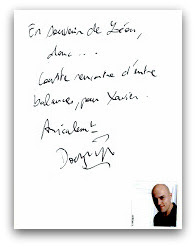 En souvenir de Léon,
donc ...
Courte rencontre d'entre
balances, pour Xavier.
Amicalemt